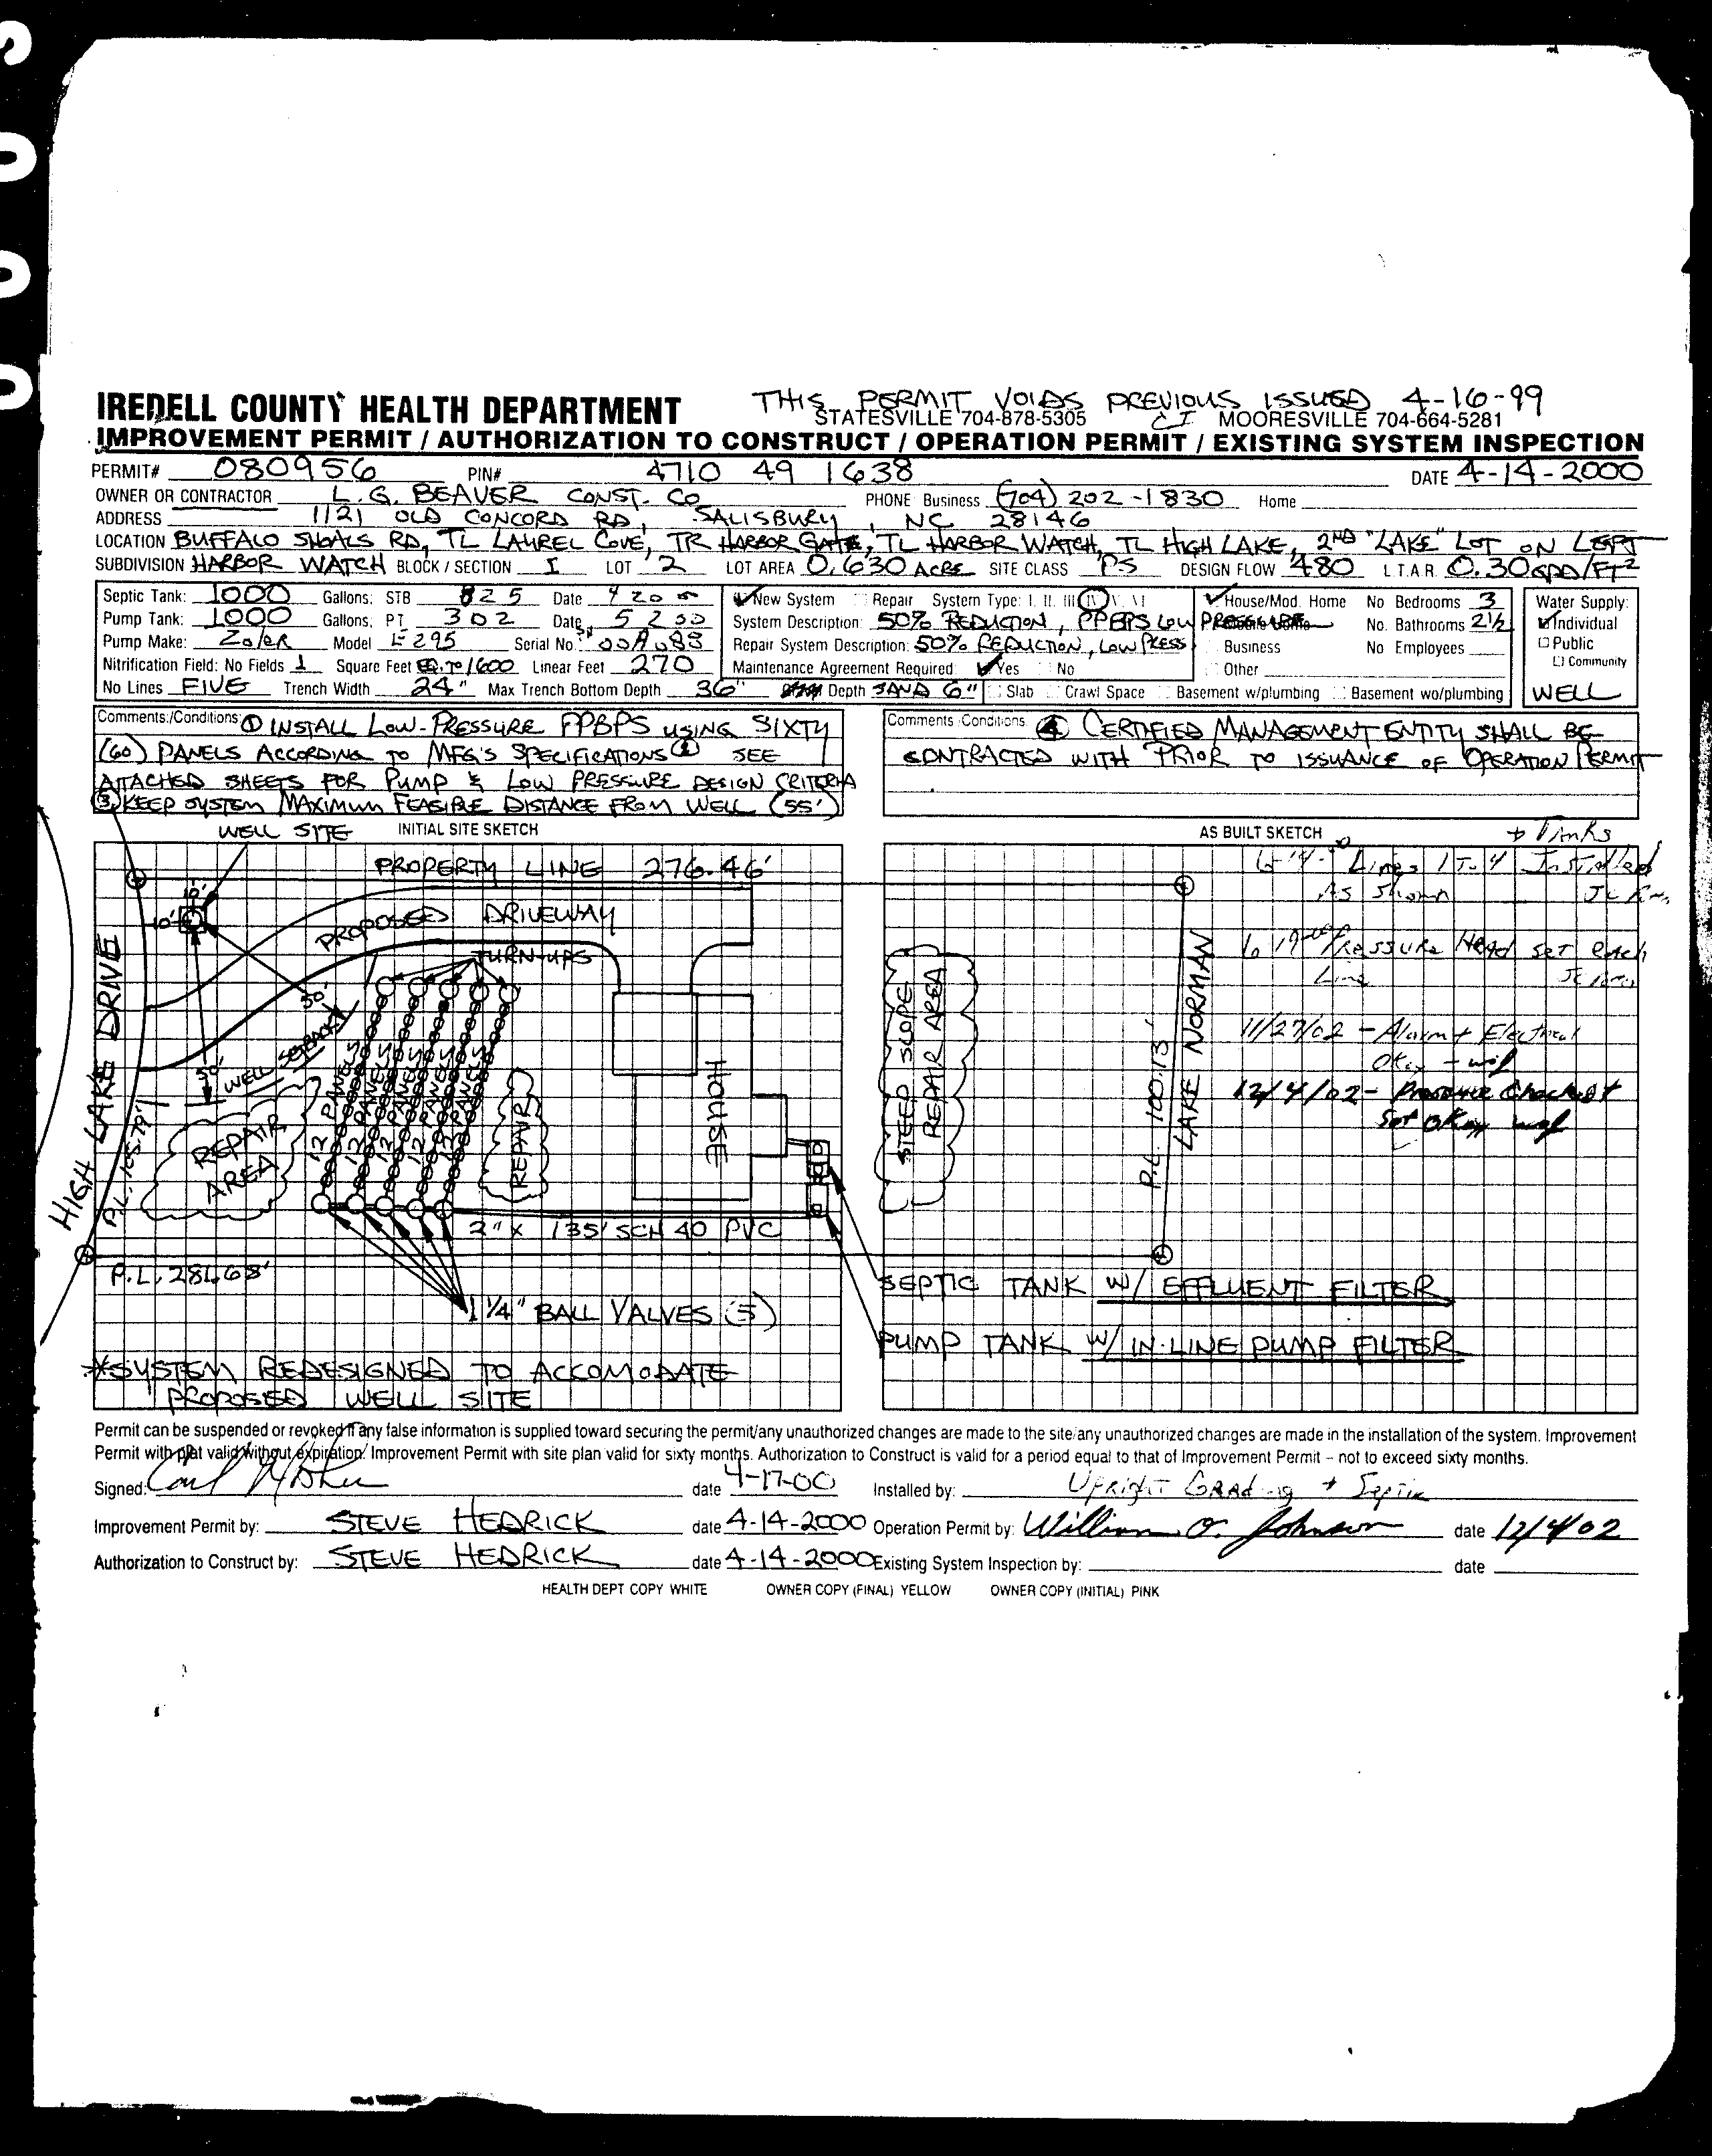 THIS PERMIT VOIDS PREVIOUS ISSUED 4-16-99
IREDELL COUNTY HEALTH DEPARTMENT STATESVILLE 704-878-5305 MOORESVILLE 704-664-5281
IMPROVEMENT PERMIT / AUTHORIZATION TO CONSTRUCT / OPERATION PERMIT / EXISTING SYSTEM INSPECTION
PERMIT# 080956 PIN# 4710 49 1638 DATE 4-14-2000
OWNER OR CONTRACTOR L.G. BEAVER CONST. CO PHONE Business (704) 202-1830 Home
ADDRESS 1121 OLD CONCORD RD, SALISBURY, NC 28146
LOCATION BUFFALO SHOALS RD, TL LAUREL COVE, TR HARBOR GATE, TL HARBOR WATCH, TL HIGH LAKE, 2ND "LAKE" LOT ON LEFT
SUBDIVISION HARBOR WATCH BLOCK / SECTION I LOT 2 LOT AREA 0.630 ACRE SITE CLASS PS DESIGN FLOW 480 L.T.A.R. 0.30 GPD/FT2
Septic Tank: 1000 Gallons: STB 825 Date 4 20 00 New System Repair System Type: I. II. III IV V. VI House/Mod. Home No Bedrooms 3 Water Supply:
Pump Tank: 1000 Gallons, PT 302 Date 5 2 00 System Description: 50% REDUCTION, PPBPS LOW PRESSURE No. Bathrooms 2½ Individual
Pump Make: Zoller Model E295 Serial No: Repair System Description: 50% REDUCTION, LOW PRESS Business No Employees Public
Nitrification Field: No Fields 1 Square Feet EQ. TO 1600 Linear Feet 270 Maintenance Agreement Required Yes No Other Community
No Lines FIVE Trench Width 24" Max Trench Bottom Depth 36" Depth SAND 6" Slab Crawl Space Basement w/plumbing Basement wo/plumbing WELL
Comments:/Conditions: ① INSTALL LOW-PRESSURE PPBPS USING SIXTY
(60) PANELS ACCORDING TO MFG'S SPECIFICATIONS ② SEE
ATTACHED SHEETS FOR PUMP & LOW PRESSURE DESIGN CRITERIA
③ KEEP SYSTEM MAXIMUM FEASIBLE DISTANCE FROM WELL (55')
Comments Conditions ④ CERTIFIED MANAGEMENT ENTITY SHALL BE
CONTRACTED WITH PRIOR TO ISSUANCE OF OPERATION PERMIT
WELL SITE INITIAL SITE SKETCH
AS BUILT SKETCH
PROPERTY LINE 276.46'
10'
10'
PROPOSED DRIVEWAY
TURN-UPS
HIGH LAKE DRIVE
50'
50'
WELL SETBACK
12 PANELS
12 PANELS
12 PANELS
12 PANELS
12 PANELS
REPAIR AREA
REPAIR
HOUSE
2" x 135' SCH 40 PVC
1 1/4" BALL VALVES (5)
*SYSTEM REDESIGNED TO ACCOMODATE
PROPOSED WELL SITE
+ Tanks
Lines 1 To 4 Installed
As Shown
Pressure Head set each
Line
11/27/02 - Alarm + Electrical
Okay
12/4/02 - Pressure Checked +
Set Okay
STEEP SLOPE
REPAIR AREA
P.L. 100.13'
LAKE NORMAN
SEPTIC TANK W/ EFFLUENT FILTER
PUMP TANK W/ IN-LINE PUMP FILTER
Permit can be suspended or revoked if any false information is supplied toward securing the permit/any unauthorized changes are made to the site/any unauthorized changes are made in the installation of the system. Improvement
Permit with plat valid without expiration. Improvement Permit with site plan valid for sixty months. Authorization to Construct is valid for a period equal to that of Improvement Permit – not to exceed sixty months.
Signed: date 4-17-00 Installed by: Upright Grading + Septic
Improvement Permit by: STEVE HEDRICK date 4-14-2000 Operation Permit by: William O. Johnson date 12/4/02
Authorization to Construct by: STEVE HEDRICK date 4-14-2000 Existing System Inspection by: date
HEALTH DEPT COPY WHITE OWNER COPY (FINAL) YELLOW OWNER COPY (INITIAL) PINK